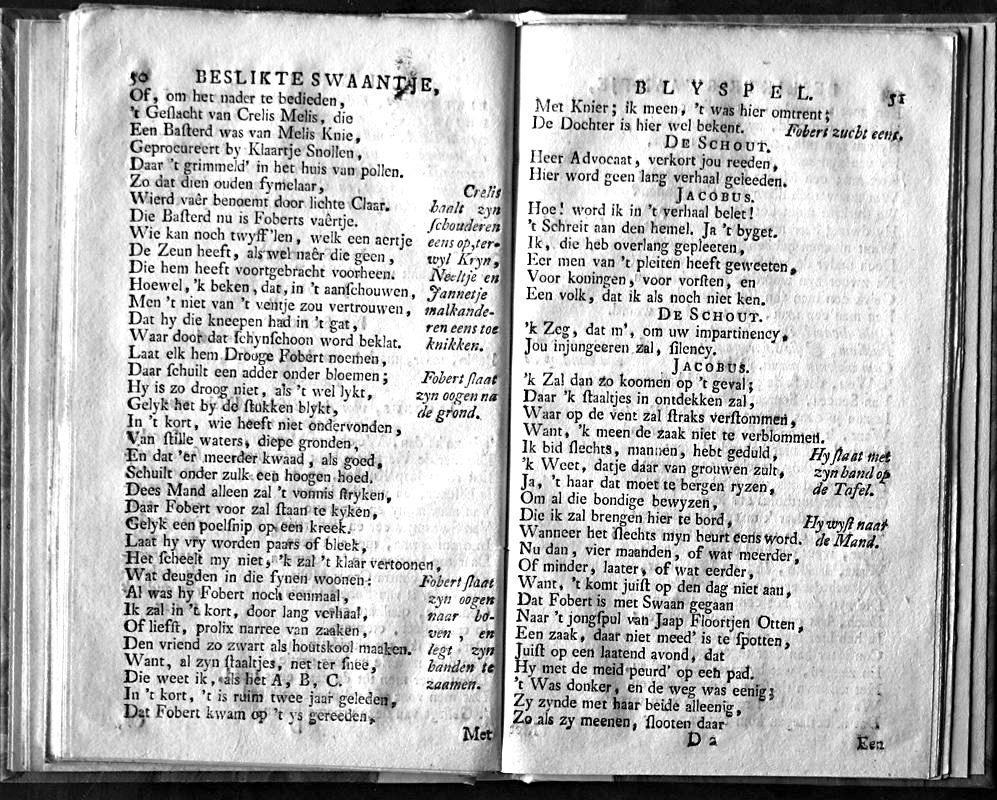 50 BESLIKTE SWAANTJE,
Of, om het nader te bedieden,
't Geſlacht van Crelis Melis, die
Een Baſterd was van Melis Knie,
Geprocureert by Klaartje Snollen,
Daar 't grimmeld' in het huis van pollen.
Zo dat dien ouden fymelaar,
Wierd vaêr benoemt door lichte Claar.
Die Baſterd nu is Foberts vaêrtje.
Wie kan noch twyff'len, welk een aertje
De Zeun heeft, als wel naêr die geen,
Die hem heeft voortgebracht voorheen.
Hoewel, 'k beken, dat, in 't aanſchouwen,
Men 't niet van 't ventje zou vertrouwen,
Dat hy die kneepen had in 't gat,
Waar door dat ſchynſchoon word beklat.
Laat elk hem Drooge Fobert noemen,
Daar ſchuilt een adder onder bloemen;
Hy is zo droog niet, als 't wel lykt,
Gelyk het by de ſtukken blykt,
In 't kort, wie heeft niet ondervonden,
Van ſtille waters, diepe gronden,
En dat 'er meerder kwaad, als goed,
Schuilt onder zulk een hoogen hoed.
Dees Mand alleen zal 't vonnis ſtryken,
Daar Fobert voor zal ſtaan te kyken,
Gelyk een poelſnip op een kreek.
Laat hy vry worden paars of bleek,
Het ſcheelt my niet, 'k zal 't klaar vertoonen,
Wat deugden in die ſynen woonen:
Al was hy Fobert noch eenmaal,
Ik zal in 't kort, door lang verhaal,
Of liefſt, prolix narree van zaaken,
Den vriend zo zwart als houtskool maaken.
Want, al zyn ſtaaltjes, net ter ſnee,
Die weet ik, als het A, B, C.
In 't kort, 't is ruim twee jaar geleden,
Dat Fobert kwam op 't ys gereeden,
Crelis
haalt zyn
ſchouderen
eens op, ter-
wyl Kryn,
Neeltje en
Jannetje
malkande-
ren eens toe
knikken.
Fobert ſlaat
zyn oogen na
de grond.
Fobert ſlaat
zyn oogen
naar bo-
ven, en
legt zyn
handen te
zaamen.
Met
BLYSPEL. 51
Met Knier; ik meen, 't was hier omtrent;
De Dochter is hier wel bekent. Fobert zucht eens,
DE SCHOUT.
Heer Advocaat, verkort jou reeden,
Hier word geen lang verhaal geleeden.
JACOBUS.
Hoe! word ik in 't verhaal belet!
't Schreit aan den hemel. Ja 't byget.
Ik, die heb overlang gepleeten,
Eer men van 't pleiten heeft geweeten,
Voor koningen, voor vorſten, en
Een volk, dat ik als noch niet ken.
DE SCHOUT.
'k Zeg, dat m', om uw impartinency,
Jou injungeeren zal, ſilency.
JACOBUS.
'k Zal dan zo koomen op 't geval;
Daar 'k ſtaaltjes in ontdekken zal,
Waar op de vent zal ſtraks verſtommen,
Want, 'k meen de zaak niet te verblommen.
Ik bid ſlechts, mannen, hebt geduld, Hy ſlaat met
'k Weet, datje daar van grouwen zult, zyn hand op
Ja, 't haar dat moet te bergen ryzen, de Tafel.
Om al die bondige bewyzen,
Die ik zal brengen hier te bord, Hy wyſt naar
Wanneer het ſlechts myn beurt eens word. de Mand.
Nu dan, vier maanden, of wat meerder,
Of minder, laater, of wat eerder,
Want, 't komt juiſt op den dag niet aan,
Dat Fobert is met Swaan gegaan
Naar 't jongſpul van Jaap Floortjen Otten,
Een zaak, daar niet meed' is te ſpotten,
Juiſt op een laatend avond, dat
Hy met de meid peurd' op een pad.
't Was donker, en de weg was eenig;
Zy zynde met haar beide alleenig,
Zo als zy meenen, ſlooten daar
D 2 Een